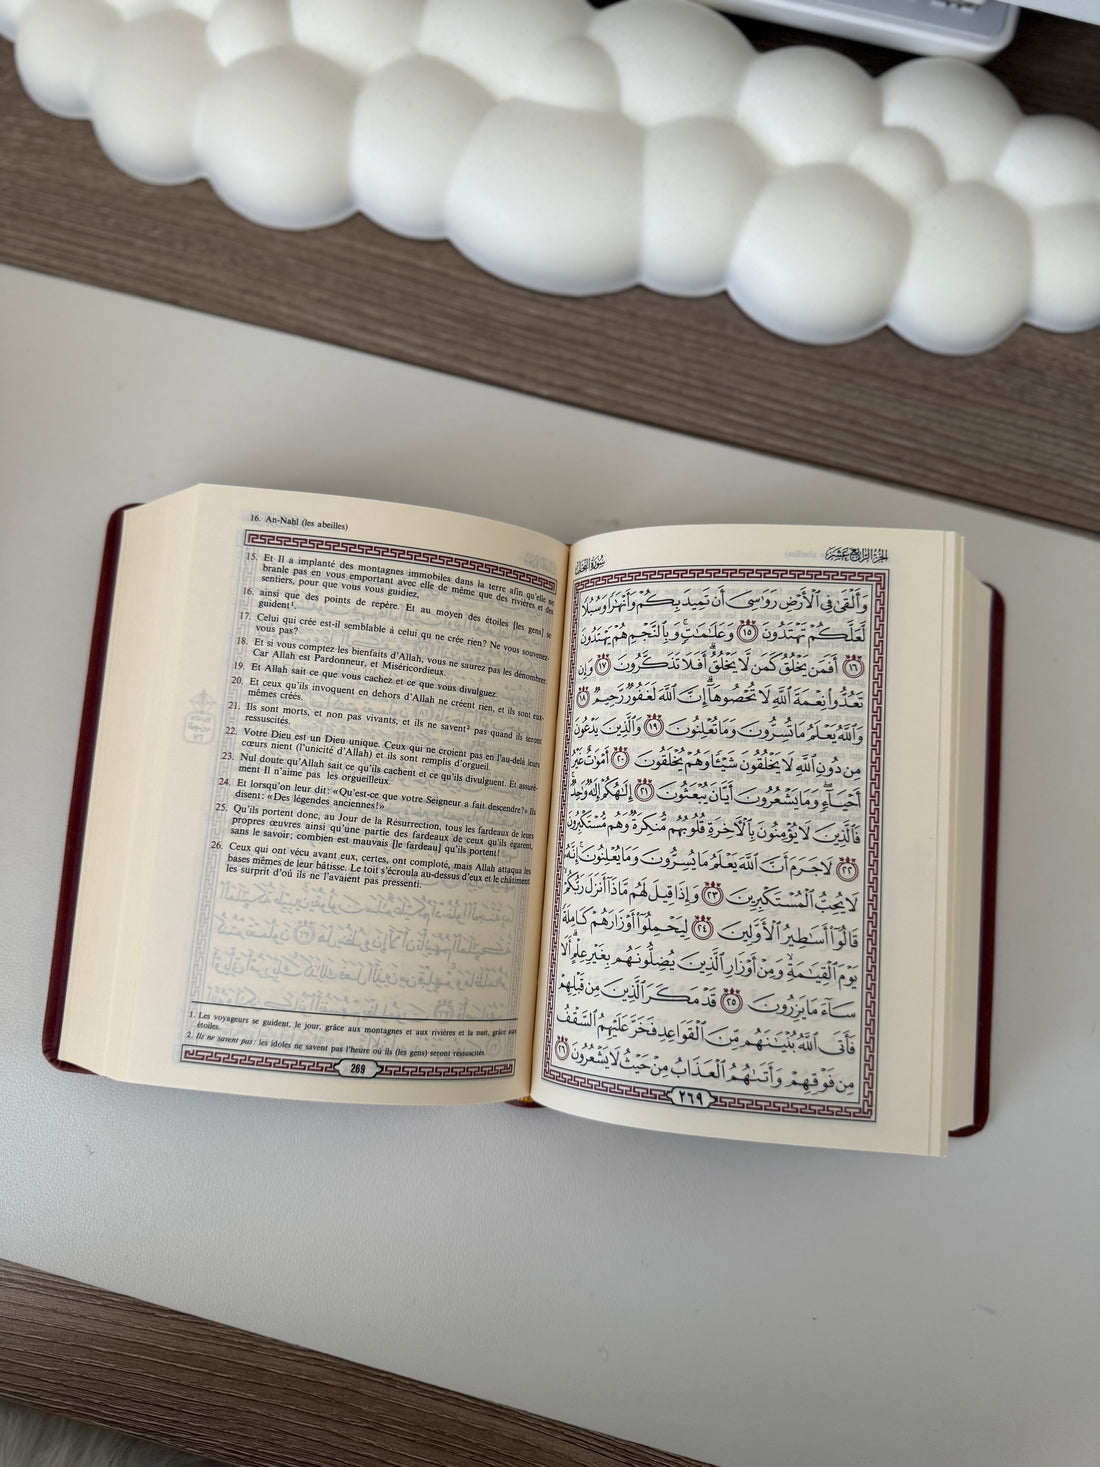 16. An-Naḥl (les abeilles)
15. Et Il a implanté des montagnes immobiles dans la terre afin qu'elle ne
branle pas en vous emportant avec elle de même que des rivières et des
sentiers, pour que vous vous guidiez,
16. ainsi que des points de repère. Et au moyen des étoiles [les gens] se
guident¹.
17. Celui qui crée est-il semblable à celui qu ne crée rien? Ne vous souvenez-
vous pas?
18. Et si vous comptez les bienfaits d'Allah, vous ne saurez pas les dénombrer.
Car Allah est Pardonneur, et Miséricordieux.
19. Et Allah sait ce que vous cachez et ce que vous divulguez.
20. Et ceux qu'ils invoquent en dehors d'Allah ne créent rien, et ils sont eux-
mêmes créés.
21. Ils sont morts, et non pas vivants, et ils ne savent² pas quand ils seront
ressuscités.
22. Votre Dieu est un Dieu unique. Ceux qui ne croient pas en l'au-delà leurs
cœurs nient (l'unicité d'Allah) et ils sont remplis d'orgueil.
23. Nul doute qu'Allah sait ce qu'ils cachent et ce qu'ils divulguent. Et assuré-
ment Il n'aime pas les orgueilleux.
24. Et lorsqu'on leur dit: «Qu'est-ce que votre Seigneur a fait descendre?» Ils
disent: «Des légendes anciennes!»
25. Qu'ils portent donc, au Jour de la Résurrection, tous les fardeaux de leurs
propres œuvres ainsi qu'une partie des fardeaux de ceux qu'ils égarent,
sans le savoir; combien est mauvais [le fardeau] qu'ils portent!
26. Ceux qui ont vécu avant eux, certes, ont comploté, mais Allah attaqua les
bases mêmes de leur bâtisse. Le toit s'écroula au-dessus d'eux et le châtiment
les surprit d'où ils ne l'avaient pas pressenti.
1. Les voyageurs se guident, le jour, grâce aux montagnes et aux rivières et la nuit, grâce aux
étoiles.
2. Ils ne savent pas: les idoles ne savent pas l'heure où ils (les gens) seront ressuscités.
269
الجزء الرابع عشر
سورة النحل
وَأَلْقَىٰ فِي ٱلْأَرْضِ رَوَٰسِيَ أَن تَمِيدَ بِكُمْ وَأَنْهَٰرًا وَسُبُلًا
لَّعَلَّكُمْ تَهْتَدُونَ ١٥ وَعَلَٰمَٰتٍ وَبِٱلنَّجْمِ هُمْ يَهْتَدُونَ
١٦ أَفَمَن يَخْلُقُ كَمَن لَّا يَخْلُقُ أَفَلَا تَذَكَّرُونَ ١٧ وَإِن
تَعُدُّوا۟ نِعْمَةَ ٱللَّهِ لَا تُحْصُوهَآ إِنَّ ٱللَّهَ لَغَفُورٌ رَّحِيمٌ ١٨
وَٱللَّهُ يَعْلَمُ مَا تُسِرُّونَ وَمَا تُعْلِنُونَ ١٩ وَٱلَّذِينَ يَدْعُونَ
مِن دُونِ ٱللَّهِ لَا يَخْلُقُونَ شَيْـًٔا وَهُمْ يُخْلَقُونَ ٢٠ أَمْوَٰتٌ غَيْرُ
أَحْيَآءٍ وَمَا يَشْعُرُونَ أَيَّانَ يُبْعَثُونَ ٢١ إِلَٰهُكُمْ إِلَٰهٌ وَٰحِدٌ
فَٱلَّذِينَ لَا يُؤْمِنُونَ بِٱلْأَخِرَةِ قُلُوبُهُم مُّنكِرَةٌ وَهُم مُّسْتَكْبِرُونَ
٢٢ لَا جَرَمَ أَنَّ ٱللَّهَ يَعْلَمُ مَا يُسِرُّونَ وَمَا يُعْلِنُونَ إِنَّهُۥ
لَا يُحِبُّ ٱلْمُسْتَكْبِرِينَ ٢٣ وَإِذَا قِيلَ لَهُم مَّاذَآ أَنزَلَ رَبُّكُمْ
قَالُوٓا۟ أَسَٰطِيرُ ٱلْأَوَّلِينَ ٢٤ لِيَحْمِلُوٓا۟ أَوْزَارَهُمْ كَامِلَةً
يَوْمَ ٱلْقِيَٰمَةِ وَمِنْ أَوْزَارِ ٱلَّذِينَ يُضِلُّونَهُم بِغَيْرِ عِلْمٍ أَلَا
سَآءَ مَا يَزِرُونَ ٢٥ قَدْ مَكَرَ ٱلَّذِينَ مِن قَبْلِهِمْ
فَأَتَى ٱللَّهُ بُنْيَٰنَهُم مِّنَ ٱلْقَوَاعِدِ فَخَرَّ عَلَيْهِمُ ٱلسَّقْفُ
مِن فَوْقِهِمْ وَأَتَىٰهُمُ ٱلْعَذَابُ مِنْ حَيْثُ لَا يَشْعُرُونَ ٢٦
٢٦٩